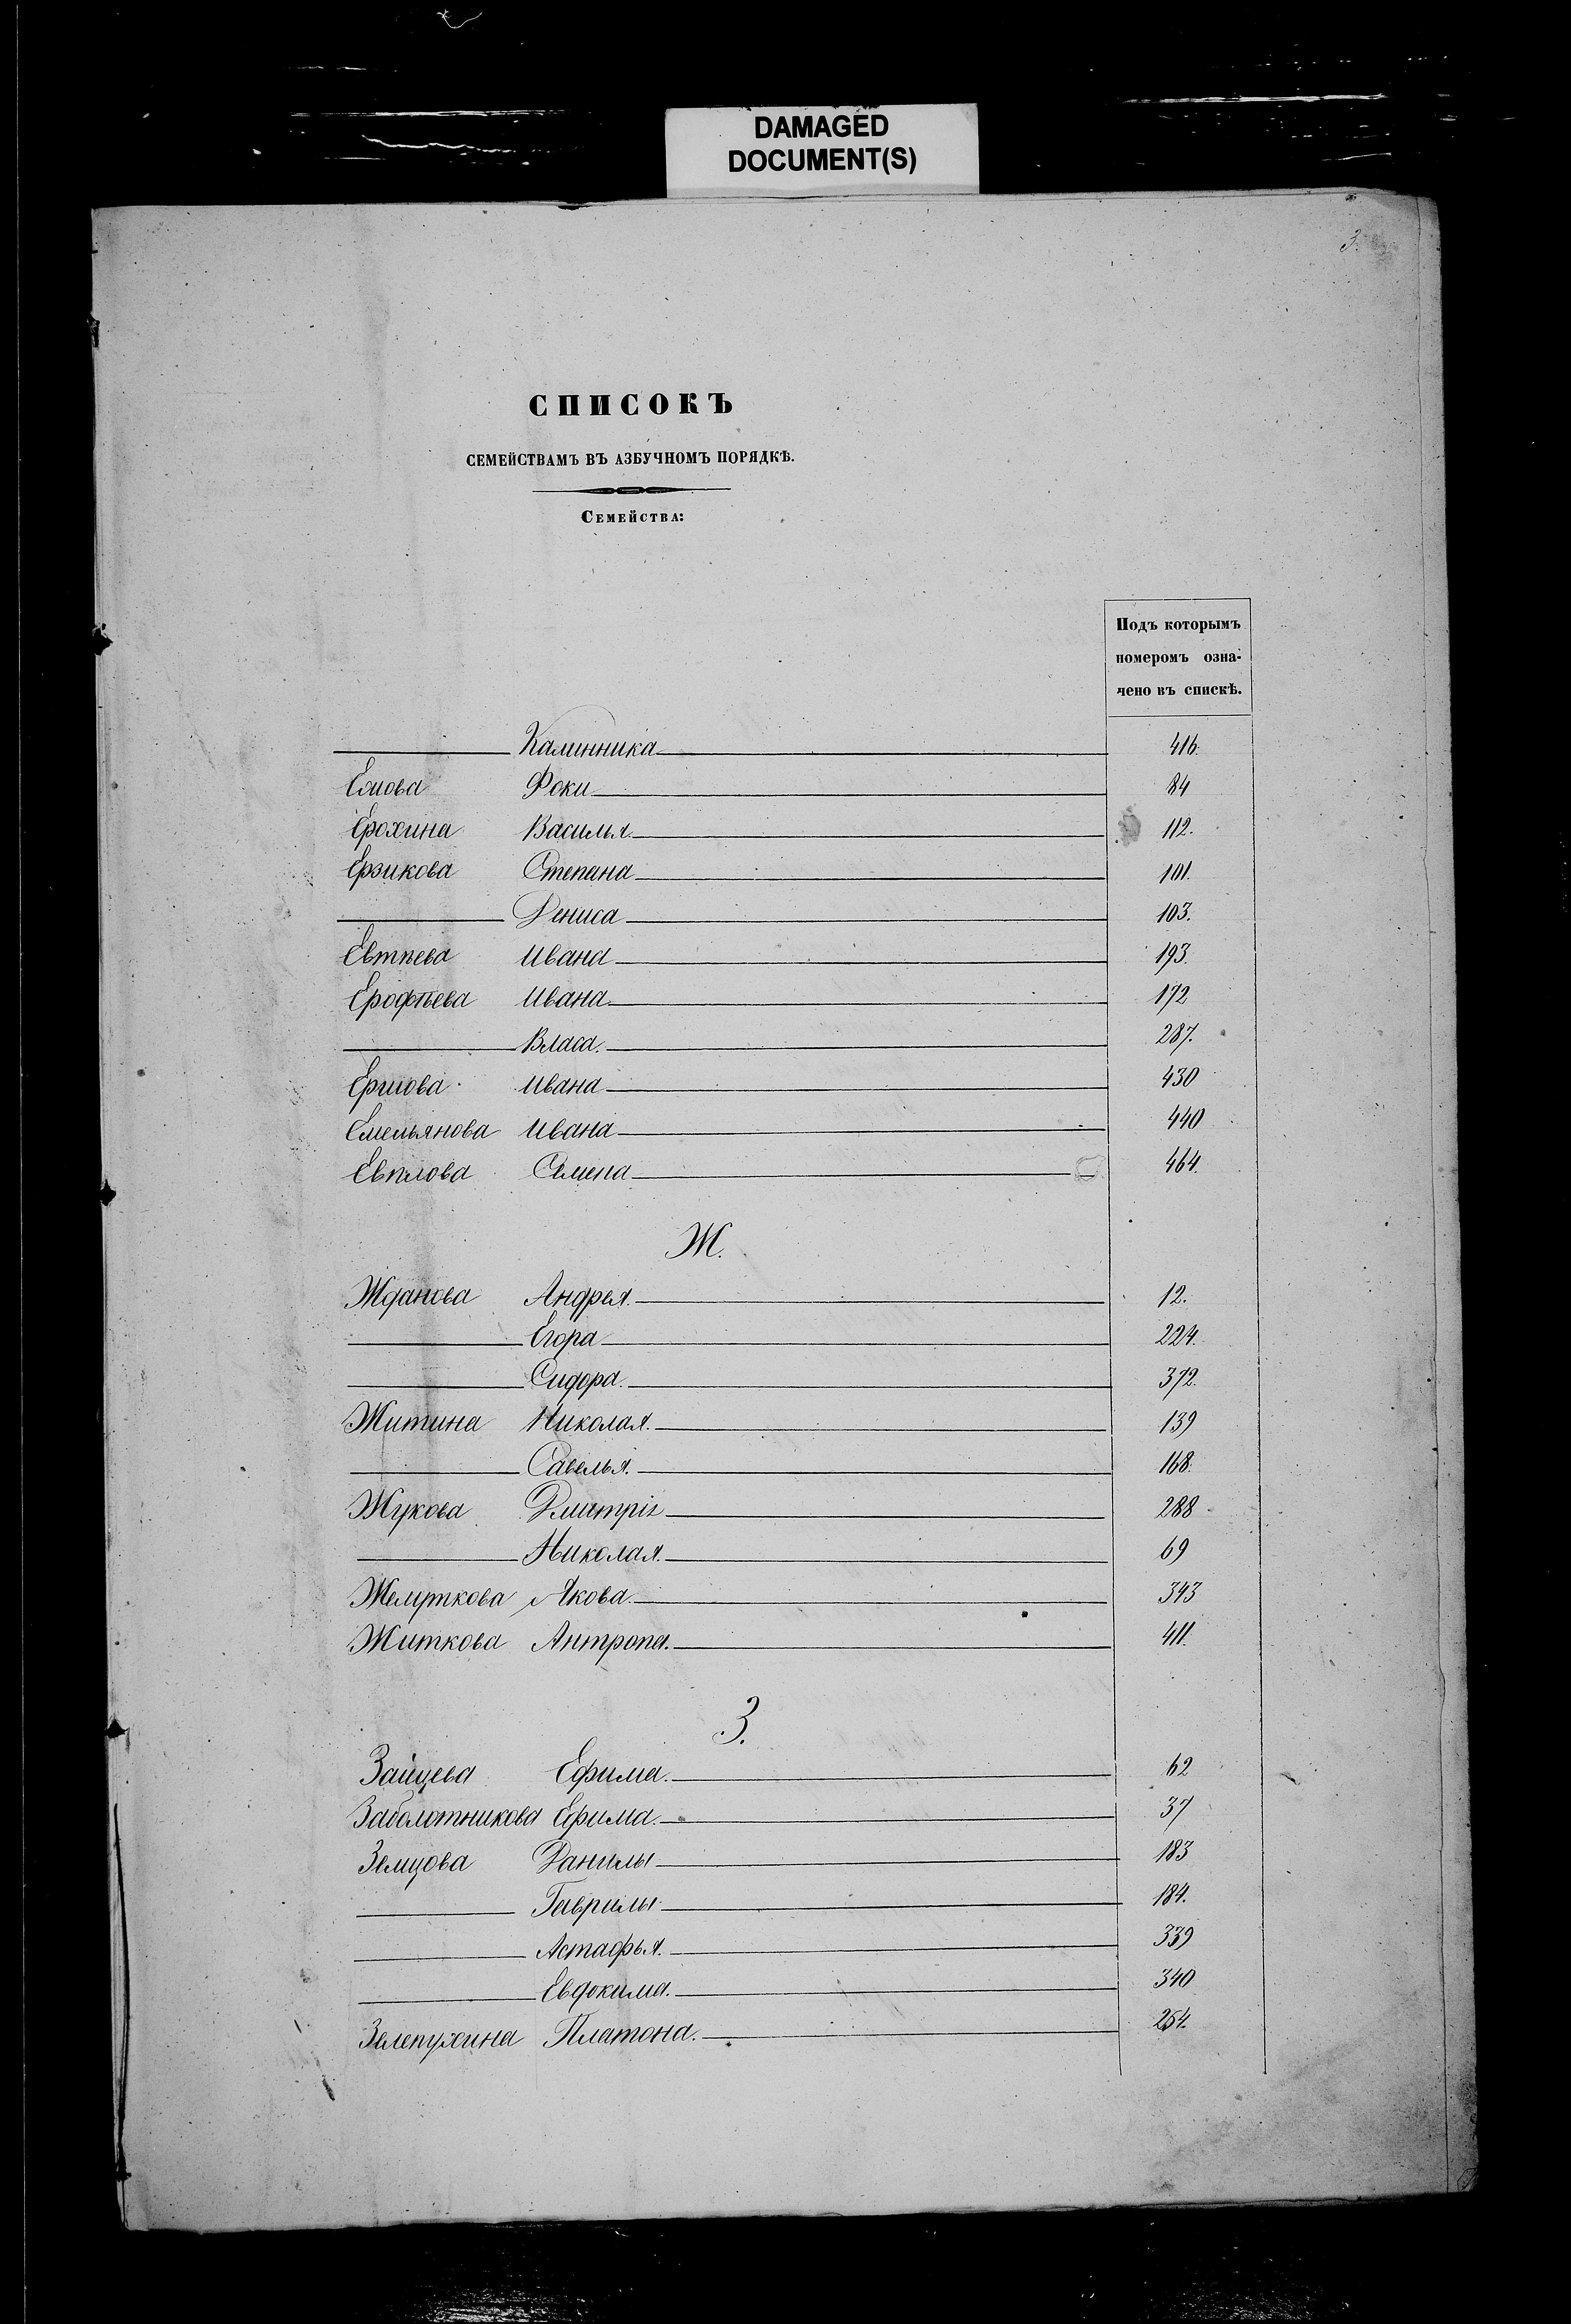 DAMAGED
DOCUMENT(S)
3.
СПИСОКЪ
СЕМЕЙСТВАМЪ ВЪ АЗБУЧНОМЪ ПОРЯДКѢ.
СЕМЕЙСТВА:
Подъ которымъ
номеромъ озна-
чено въ спискѣ.
Калинника 416.
Фоки 84
Ерохина Василья 112.
Ерзикова Степана 101.
Дениса 103.
Евтѣева Ивана 193.
Ерофѣева Ивана 172
Власа. 287.
Ершова Ивана 430
Емельянова Ивана 440
Евплова Семена 464.
Ж.
Жданова Андрея. 12.
Егора 224.
Сидора. 372.
Житина Николая. 139
Савелья. 168.
Жукова Дмитрія 288
Николая. 69
Желуткова Якова. 343
Житкова Антропа. 411.
З.
Зайцева Ефима. 62
Заболотникова Ефима. 37
Земцова Данилы 183
Гаврилы 184.
Астафья. 339
Евдокима. 340
Зелепухина Платона. 254.